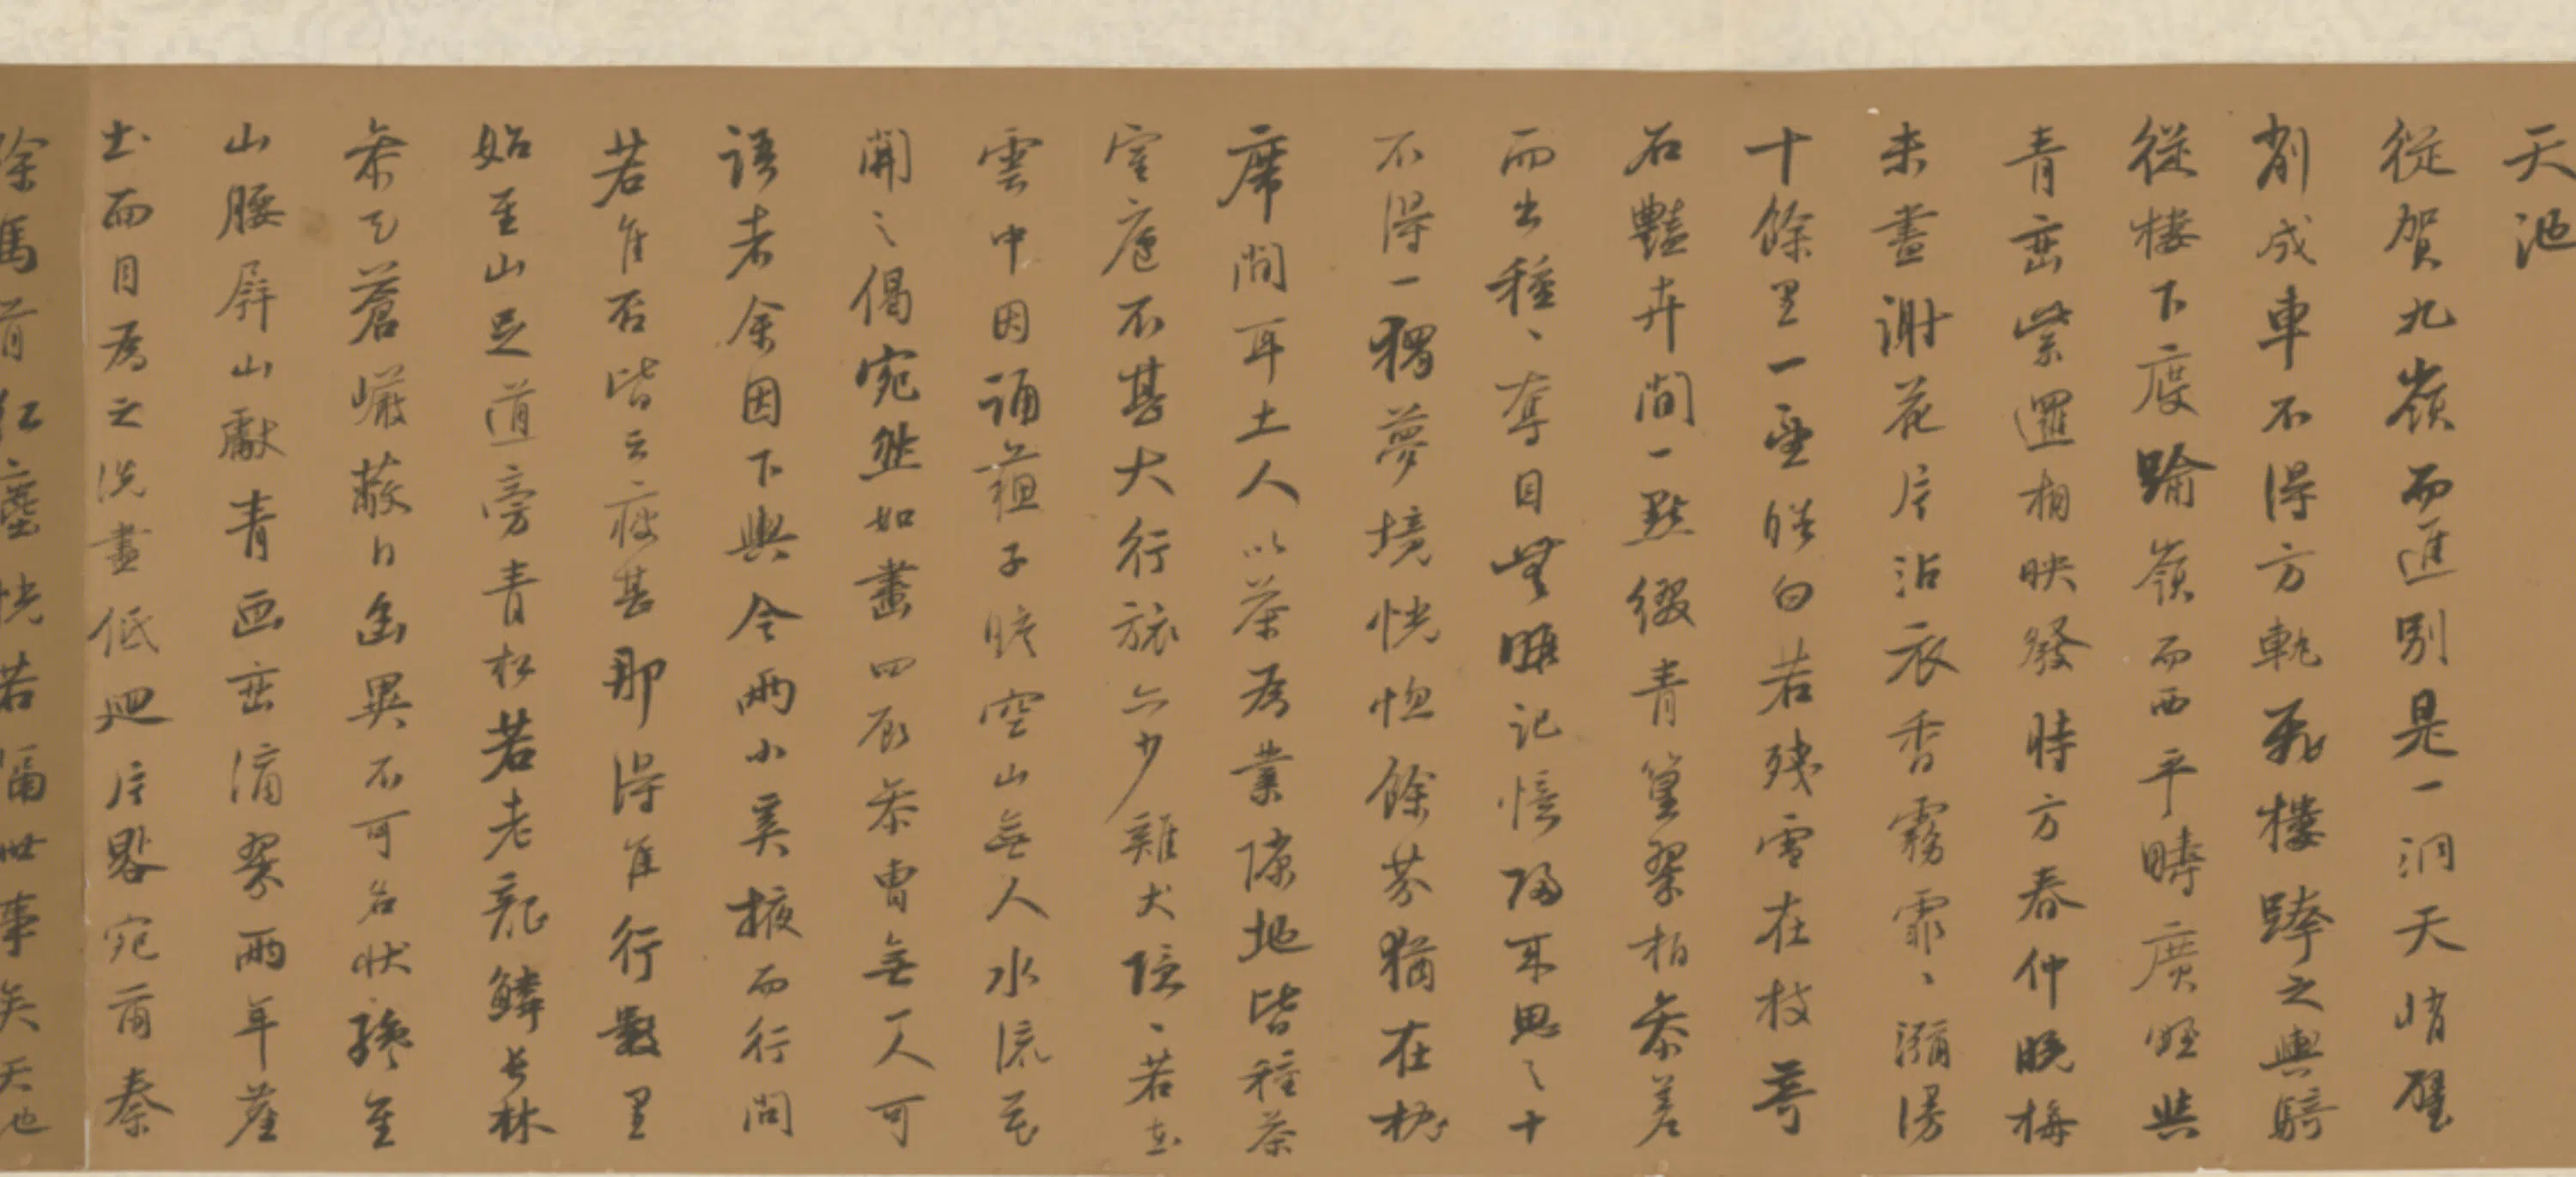 天池
從賀九嶺而進別是一洞天峭壁
削成車不得方軌飛樓跨之輿騎
從樓下度踰嶺而西平疇廣野與
青巒紫邏相映發時方春仲晚梅
未盡謝花片沾衣香霧霏、瀰漫
十餘里一望皓白若殘雪在枝奇
石豔卉間一點綴青篁翠柏參差
而出種、奪目無暇記憶歸來思之十
不得一獨夢境恍惚餘芬猶在枕
席間耳土人以茶為業隙地皆種茶
室廬不甚大行旅亦少雞犬隱、若在
雲中因誦蘇子瞻空山無人水流花
開之偈宛然如畫四顧參曹無一人可
語者余因下輿令兩小奚掖而行問
若隹否皆云疲甚那得隹行數里
始至山足道旁青松若老龍鱗長林
參天蒼巖蔽日幽異不可名狀纔至
山腰屏山獻青画巒滴翠兩年塵
土面目為之洗盡低迴片晷宛爾秦
除馬首紅塵恍若隔世事矣天池